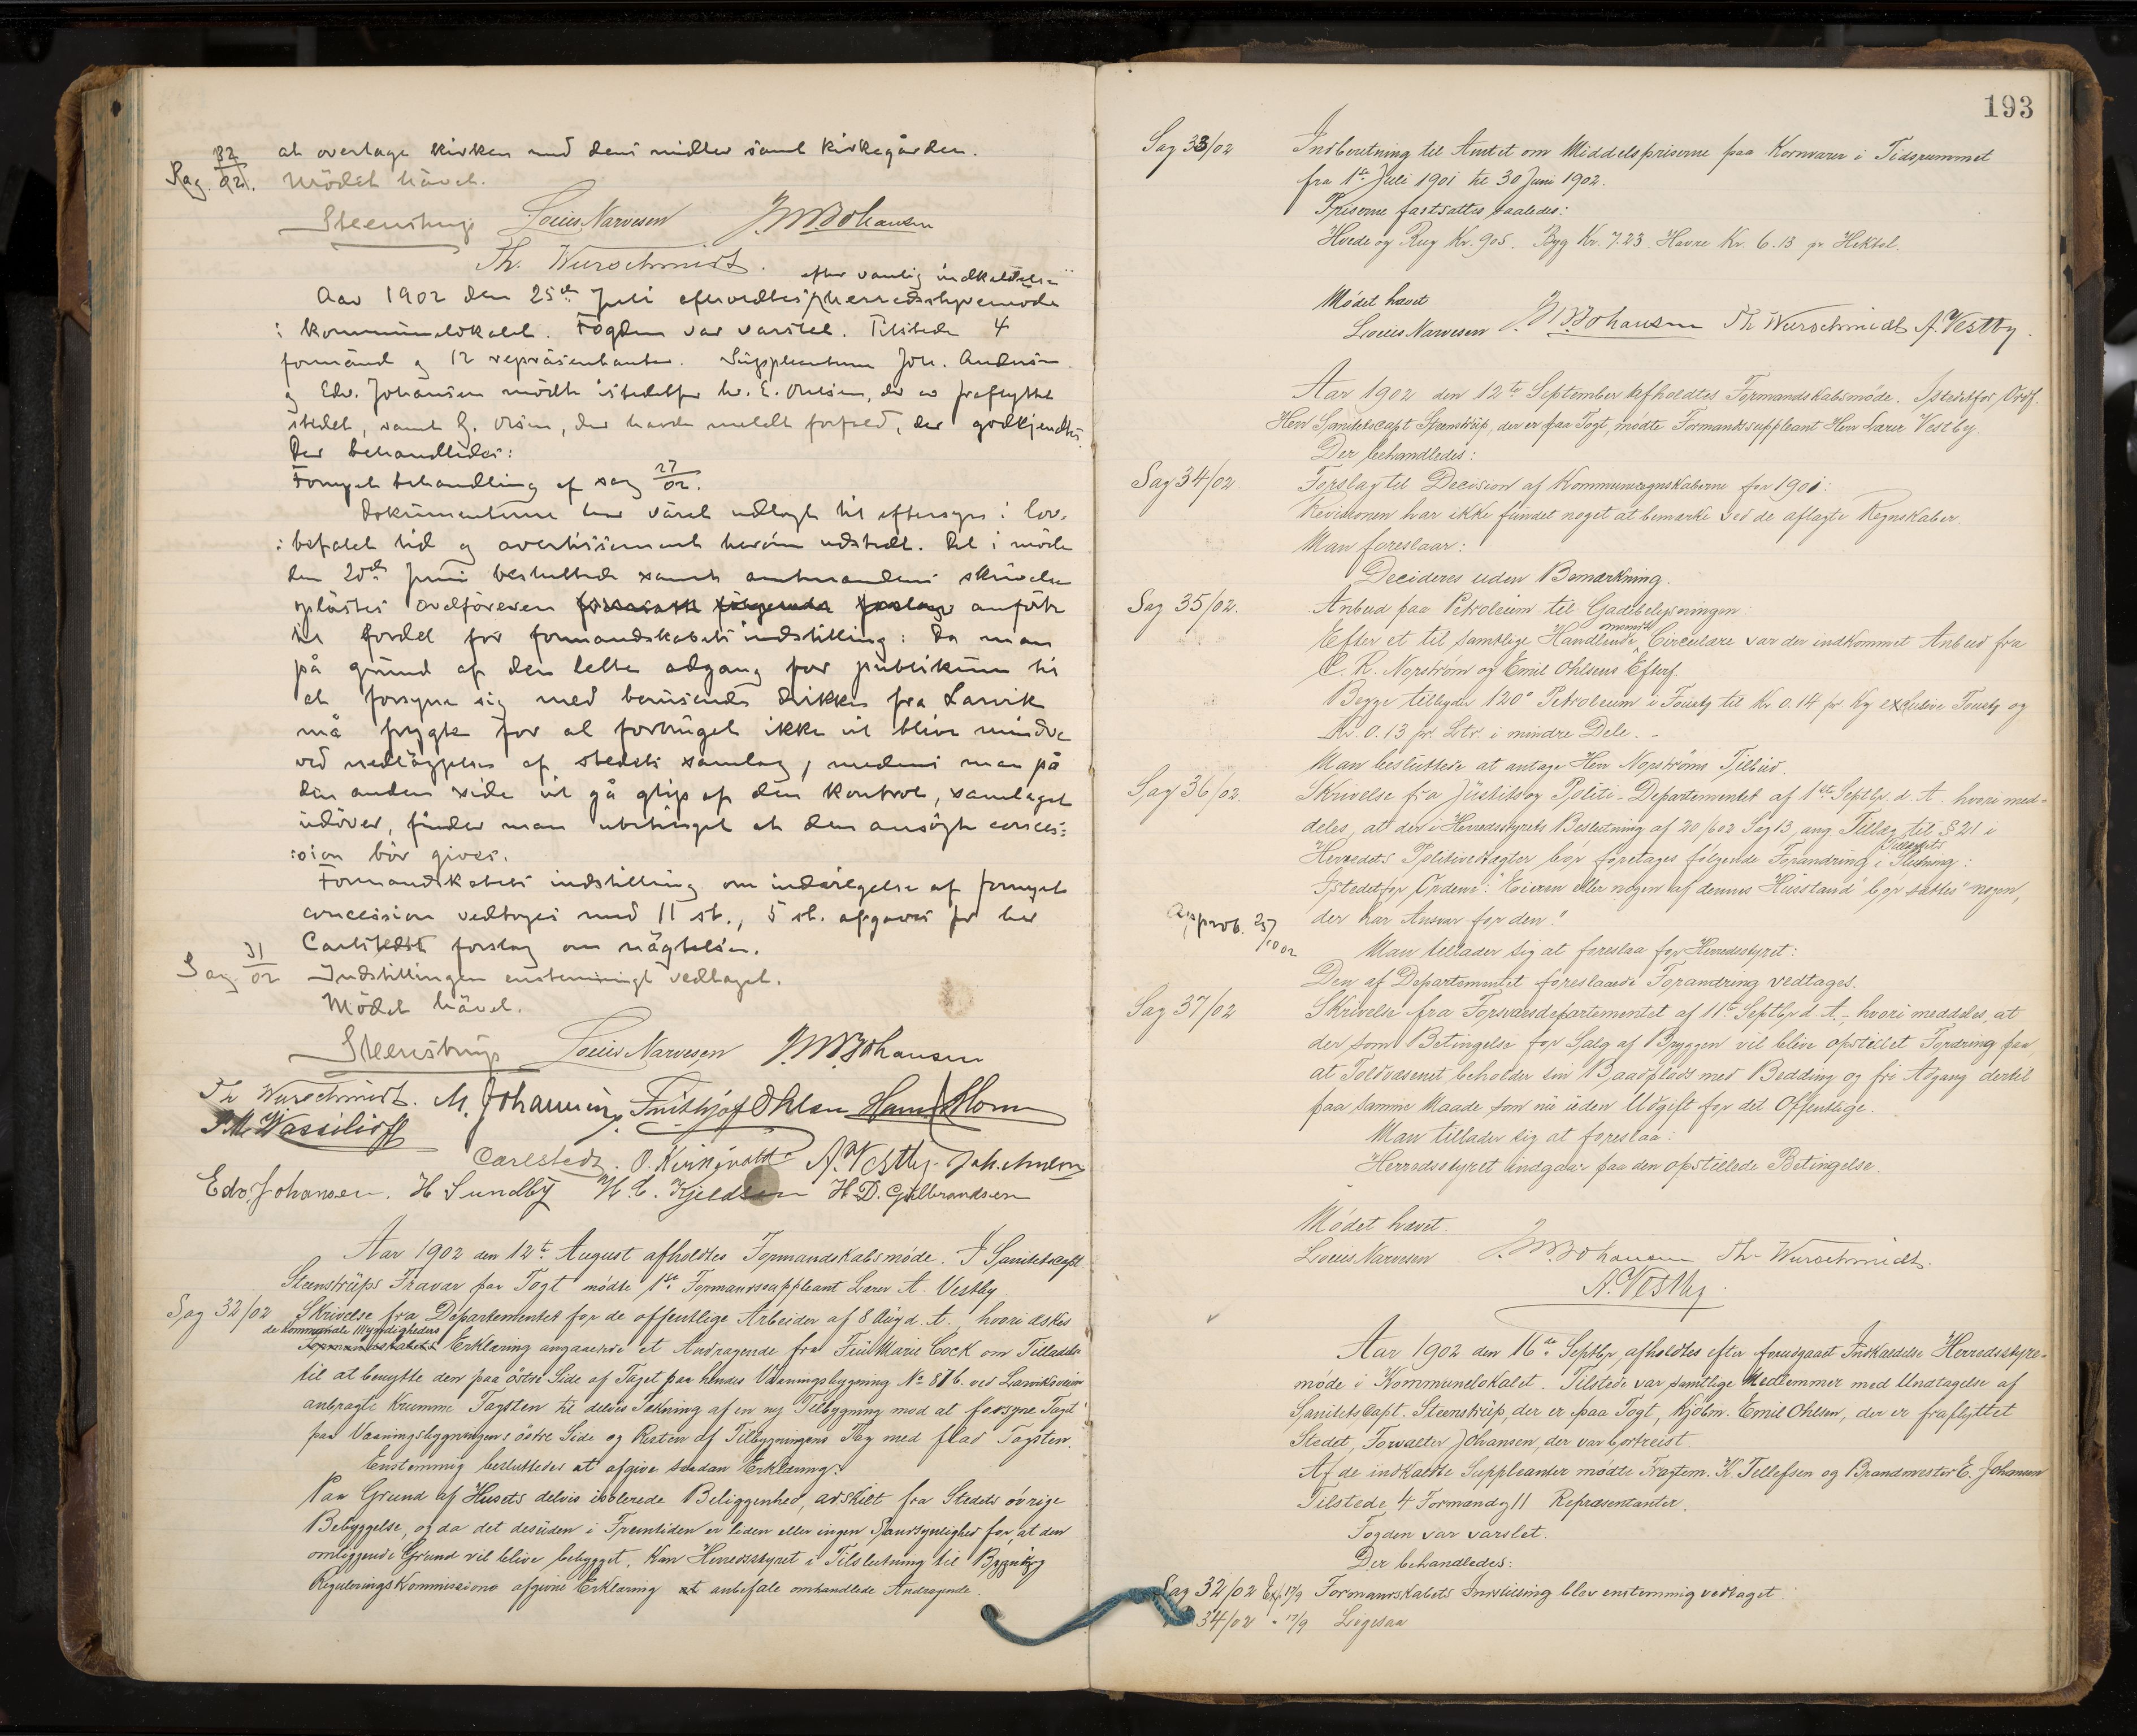 at overtage kirken med dens midler samt kirkegården.
Sag 32/02. Mödet hävet.
Steenstrup Louis Narvesen J. M. Johansen
Th. Wurschmidt.
efter vanlig indkaldelse
Aar 1902 den 25de Juli afholdtes herredsstyremöde
i kommunelokalet. Fogden var varslet. Tilstede 4
formänd og 12 repräsentanter. Suppleanterne Joh. Andersen
og Edv. Johansen mödte istedetfor hr. E. Ohlsen, der er fraflyttet
stedet, samt G. Olsen, der havde meldt forfald, der godkjendtes.
Der behandledes:
Fornyet behandling af sag 27/02.
Dokumenterne har väret udlagt til eftersyn i lov-
befalet tid og avertissement herom udstedt. Det i möde
den 20de Juni besluttede samt amtmandens skrivelse
oplästes. Ordföreren forsvarte fölgende forslag anförte
til fordel for formandskabets indstilling: Da man
på grund af den lette adgang for publikum til
at forsyne sig med berusende drikke fra Larvik
må frygte for at forbruget ikke vil blive mindre
ved nedläggelse af stedets samlag, medens man på
den anden side vil gå glip af den kontrol, samlaget
udöver, finder man ubetinget at den ansögte conces-
sion bör gives.
Formandskabets indstilling om indvilgelse af fornyet
concession vedtoges med 11 st., 5 st. afgaves for herr
Carlstedts forslag om nägtelse.
Sag 31/02 Indstillingen enstemmigt vedtaget.
Mödet hävet.
Steenstrup Louis Narvesen J. M. Johansen
Th Wurschmidt. M. Johannesen Frithjof Ohlsen Hans Holm
P. M. Wassilioff
Carlstedt. O. Kirkevold A. Vestby. Joh. Andersen
Edv. Johansen. H Sundby N. C. Kjeldsen H. D. Gulbrandsen
Aar 1902 den 12te August afholdtes Formandskabsmøde. I Sanitetscapt.
Steenstrüps Fravær paa Togt mødte 1ste Formandssuppleant Lærer A. Vestby
Sag 32/02 Skrivelse fra Departementet for de offentlige Arbeider af 8 Aug d. A., hvori æskes
de kommunale Myndigheders
Formandskabets Erklæring angaaende et Andragende fra Frü Marie Cock om Tilladelse
til at benytte den paa östre Side af Taget paa hendes Vaaningsbygning No 876. ved Larviksveien
anbragte Krumme Tagsten til delvis Tækning af en ny Tilbygning mod at forsyne Taget
paa Vaaningsbygningens östre Side og Resten af Tilbygningens Tag med flad Tagsten.
Enstemmig besluttedes at afgive saadan Erklæring:
Paa Grund af Husets delvis isolerede Beliggenhed, adskilt fra Stedets óvrige
Bebyggelse, og da det desuden i Fremtiden er liden eller ingen Sandsynlighed for, at den
omliggende Grund vil blive bebygget, kan Herredsstyret i Tilslutning til Bygnings og
Reguleringskommissions afgivne Erklæring at anbefale omhandlede Andragende.
193
Sag 33/02 Indberetning til Amtet om Middelspriserne paa Kornvarer i Tidsrummet
fra 1ste Juli 1901 til 30 Juni 1902.
Priserne fastsattes saaledes:
Hvede og Rug Kr. 9.05. Byg Kr. 7.23. Havre Kr. 6.13 pr Hektol.
Mødet hævet
Louis Narvesen J. M. Johansen Th Wurschmidt A. Vestby.
Aar 1902 den 12te September afholdtes Formandskabsmøde. Istedetfor Ordf.
Herr Sanitetscapt Steenstrüp, der er paa Togt, mødte Formandssuppleant Herr Lærer Vestby.
Der behandledes:
Sag 34/02. Forslag til Decision af Kommuneregnskaberne for 1901:
Revisionen har ikke fundet noget at bemærke ved de aflagte Regnskaber.
Man foreslaar:
Decideres uden Bemærkning.
Sag 35/02. Anbud paa Petroleum til Gadebelysningen:
Efter et til samtlige Handlende omsendt Circulære var der indkommet Anbud fra
C. R. Norstrøm og Emil Ohlsens Efterf.
Begge tilbyder 120° Petroleum i Fustg til Kr. 0.14 pr Kg exclusive Fustg og
Kr. 0.13 pr. Ltr. i mindre Dele. -
Man besluttede at antage Herr Norstrøms Tilbud.
Sag 36/02. Skrivelse fra Justits og Politi-Departementet af 1ste Septbr. d. A. hvori med-
deles, at der i Herredsstyrets Beslutning af 20/6 02 Sag 13, ang. Tillæg til § 21 i
Herredets Politivedtægter bør foretages følgende Forandring i Tillægets Slutning:
Istedetfor Ordene: "Eieren eller nogen af dennes Husstand" bør sættes "nogen,
der har Ansvar for den."
Approb. 25/10 02
Man tillader sig at foreslaa for Herredsstyret:
Den af Departementet foreslaaede Forandring vedtages.
Sag 37/02 Skrivelse fra Forsvarsdepartementet af 11te Septbr d. A., hvori meddeles, at
der som Betingelse for Salg af Bryggen vil blive opstillet Fordring paa,
at Toldvæsenet beholder sin Baadplads med Bedding og fri Adgang dertil
paa samme Maade som nu uden Udgift for det Offentlige.
Man tillader sig at foreslaa:
Herredsstyret indgaar paa den opstillede Betingelse.
Mødet hævet.
Louis Narvesen J. M. Johansen Th Wurschmidt.
A. Vestby.
Aar 1902 den 16de Septbr, afholdtes efter forudgaaet Indkaldelse Herredsstyre-
møde i Kommunelokalet. Tilstede var samtlige Medlemmer med Undtagelse af
SanitetsCapt. Steenstrüp, der er paa Togt, Kjøbm. Emil Ohlsen, der er fraflyttet
Stedet, Forvalter Johansen, der var bortreist.
Af de indkaldte Suppleanter mødte Fragtem. K. Tellefsen og Brandmester E. Johansen
Tilstede 4 Formænd og 11 Repræsentanter.
Fogden var varslet.
Der behandledes:
Sag 32/02 Exp 17/9 Formandskabets Indstilling blev enstemmig vedtaget.
34/02 " 17/9 Ligesaa